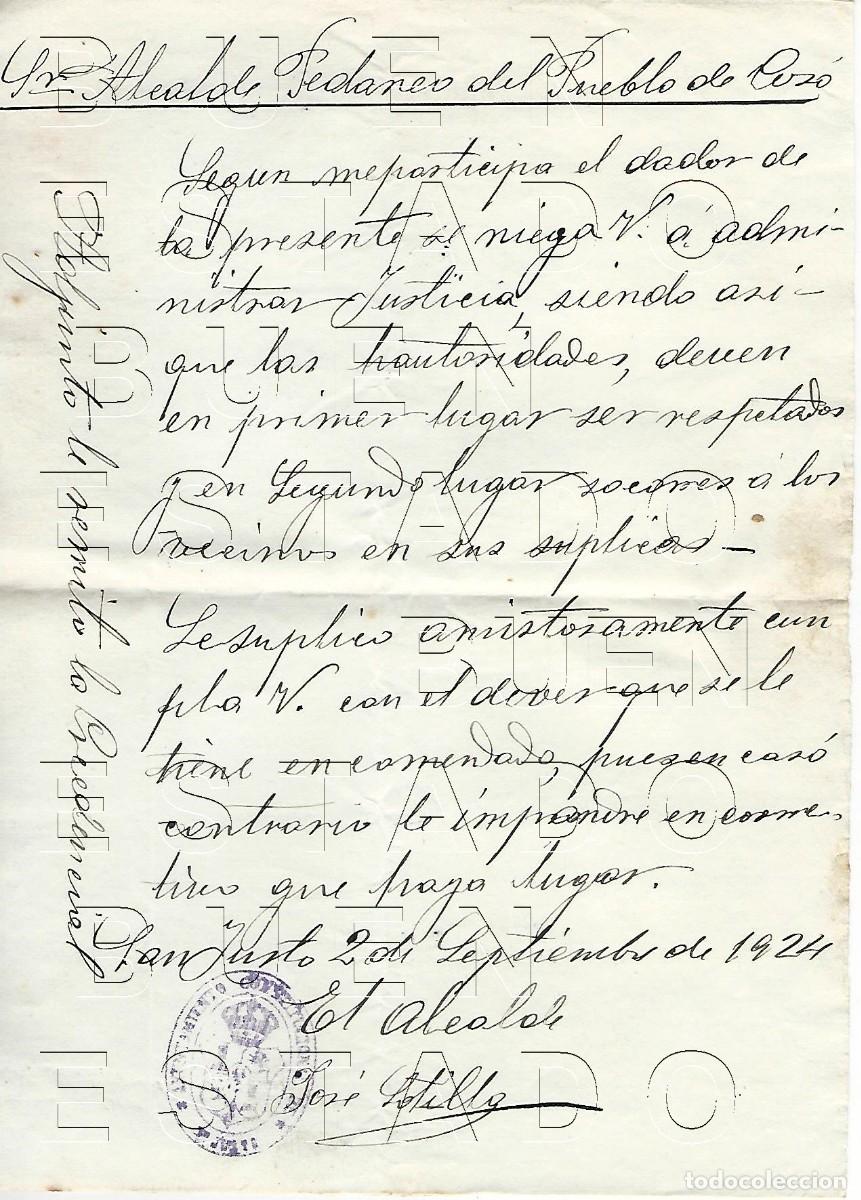 Sr. Alcalde Pedaneo del Pueblo de Cosó
Segun meparticipa el dador de
la presente se niega V. á admi-
nistrar Justicia, siendo asi-
que las hautoridades, deven
en primer lugar ser respetados
y en Segundo lugar socorres á los
vecinos en sus suplicas—
Le suplico amistosamente cun
pla V. con el dever que se le
tiene en comendado, pues en casó
contrario le impondre en correc-
tivo que haya lugar.
San Justo 2 de Septiembre de 1924
El Alcalde
José Sotillo
Adjunto le remito la Credencial
AYUNTAMIENTO CONSTITUCIONAL
BUEN
ESTADO
BUEN
ESTADO
BUEN
ESTADO
BUEN
ESTADO
todocoleccion